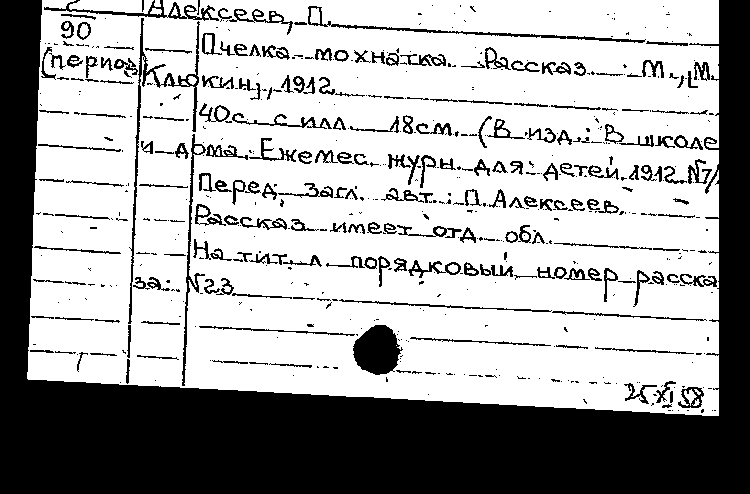 Алексеев, П.
90
(период)
Пчелка мохнатка. Рассказ. М., [М.
Клюкин], 1912.
40с. с илл. 18см. (В изд.: В школе
и дома. Ежемес. журн. для детей. 1912. №7/
Перед загл. авт.: П. Алексеев.
Рассказ имеет отд. обл.
На тит. л. порядковый номер расска
за: №23
25 XI 58.